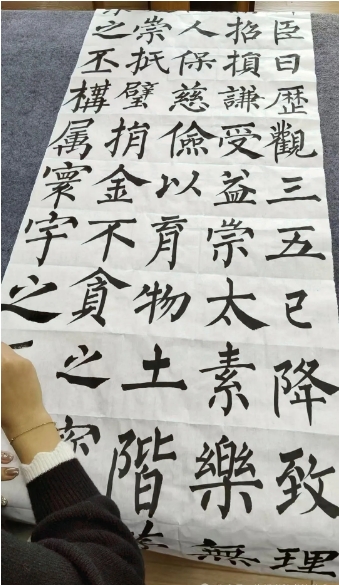 臣曰歷觀三五已降致理
招損謙受益崇太素樂無
人保慈儉以育物土階
崇扺璧捐金不貪之
之丕構属寰宇之